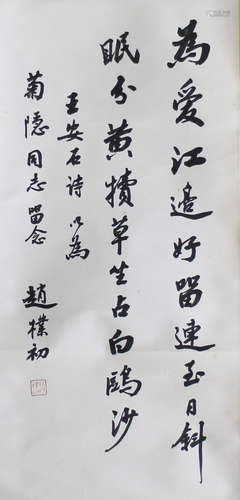 為愛江邊好留連至日斜
眠分黃犢草坐占白鷗沙
王安石詩以為
菊隱同志留念
趙樸初